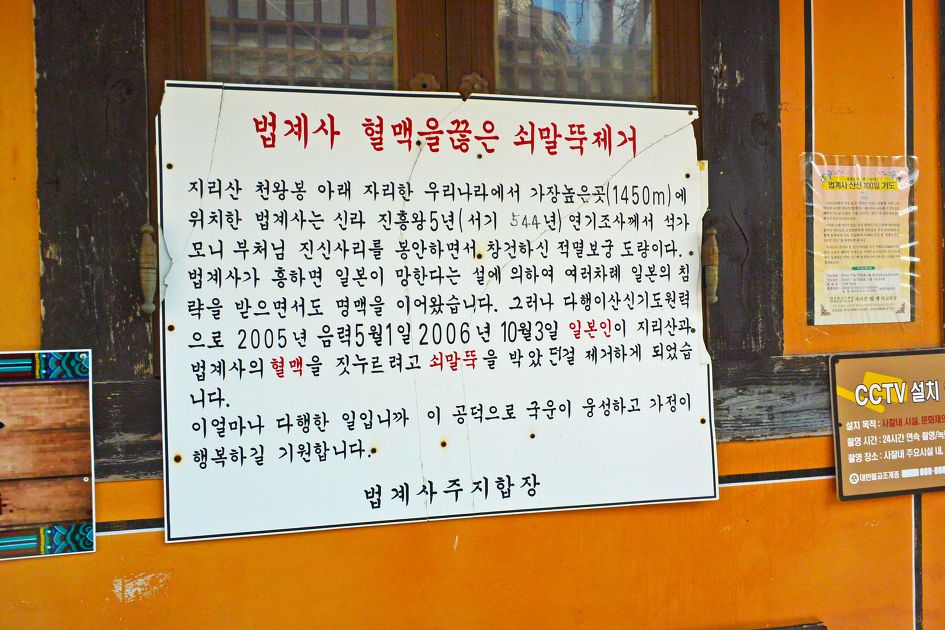 법계사 혈맥을끊은 쇠말뚝제거
지리산 천왕봉 아래 자리한 우리나라에서 가장높은곳(1450m)에
위치한 법계사는 신라 진흥왕5년(서기 544년) 연기조사께서 석가
모니 부처님 진신사리를 봉안하면서 창건하신 적멸보궁 도량이다.
법계사가 흥하면 일본이 망하다는 설에 의하여 여러차례 일본의 침
략을 받으면서도 명맥을 이어왔습니다. 그러나 다행이산신기도원력
으로 2005년 음력5월1일 2006년 10월3일 일본인이 지리산과
법계사의 혈맥을 짓누르려고 쇠말뚝을 박았던걸 제거하게 되었습
니다.
이얼마나 다행한 일입니까 이 공덕으로 국운이 웅성하고 가정이
행복하길 기원합니다.
법계사주지합장
법계사 산신 100일 기도
CCTV 설치
설치 목적 : 사찰내 시설, 문화재
촬영 시간 : 24시간 연속 촬영/녹
촬영 장소 : 사찰내 주요시설 내,
대한불교조계종